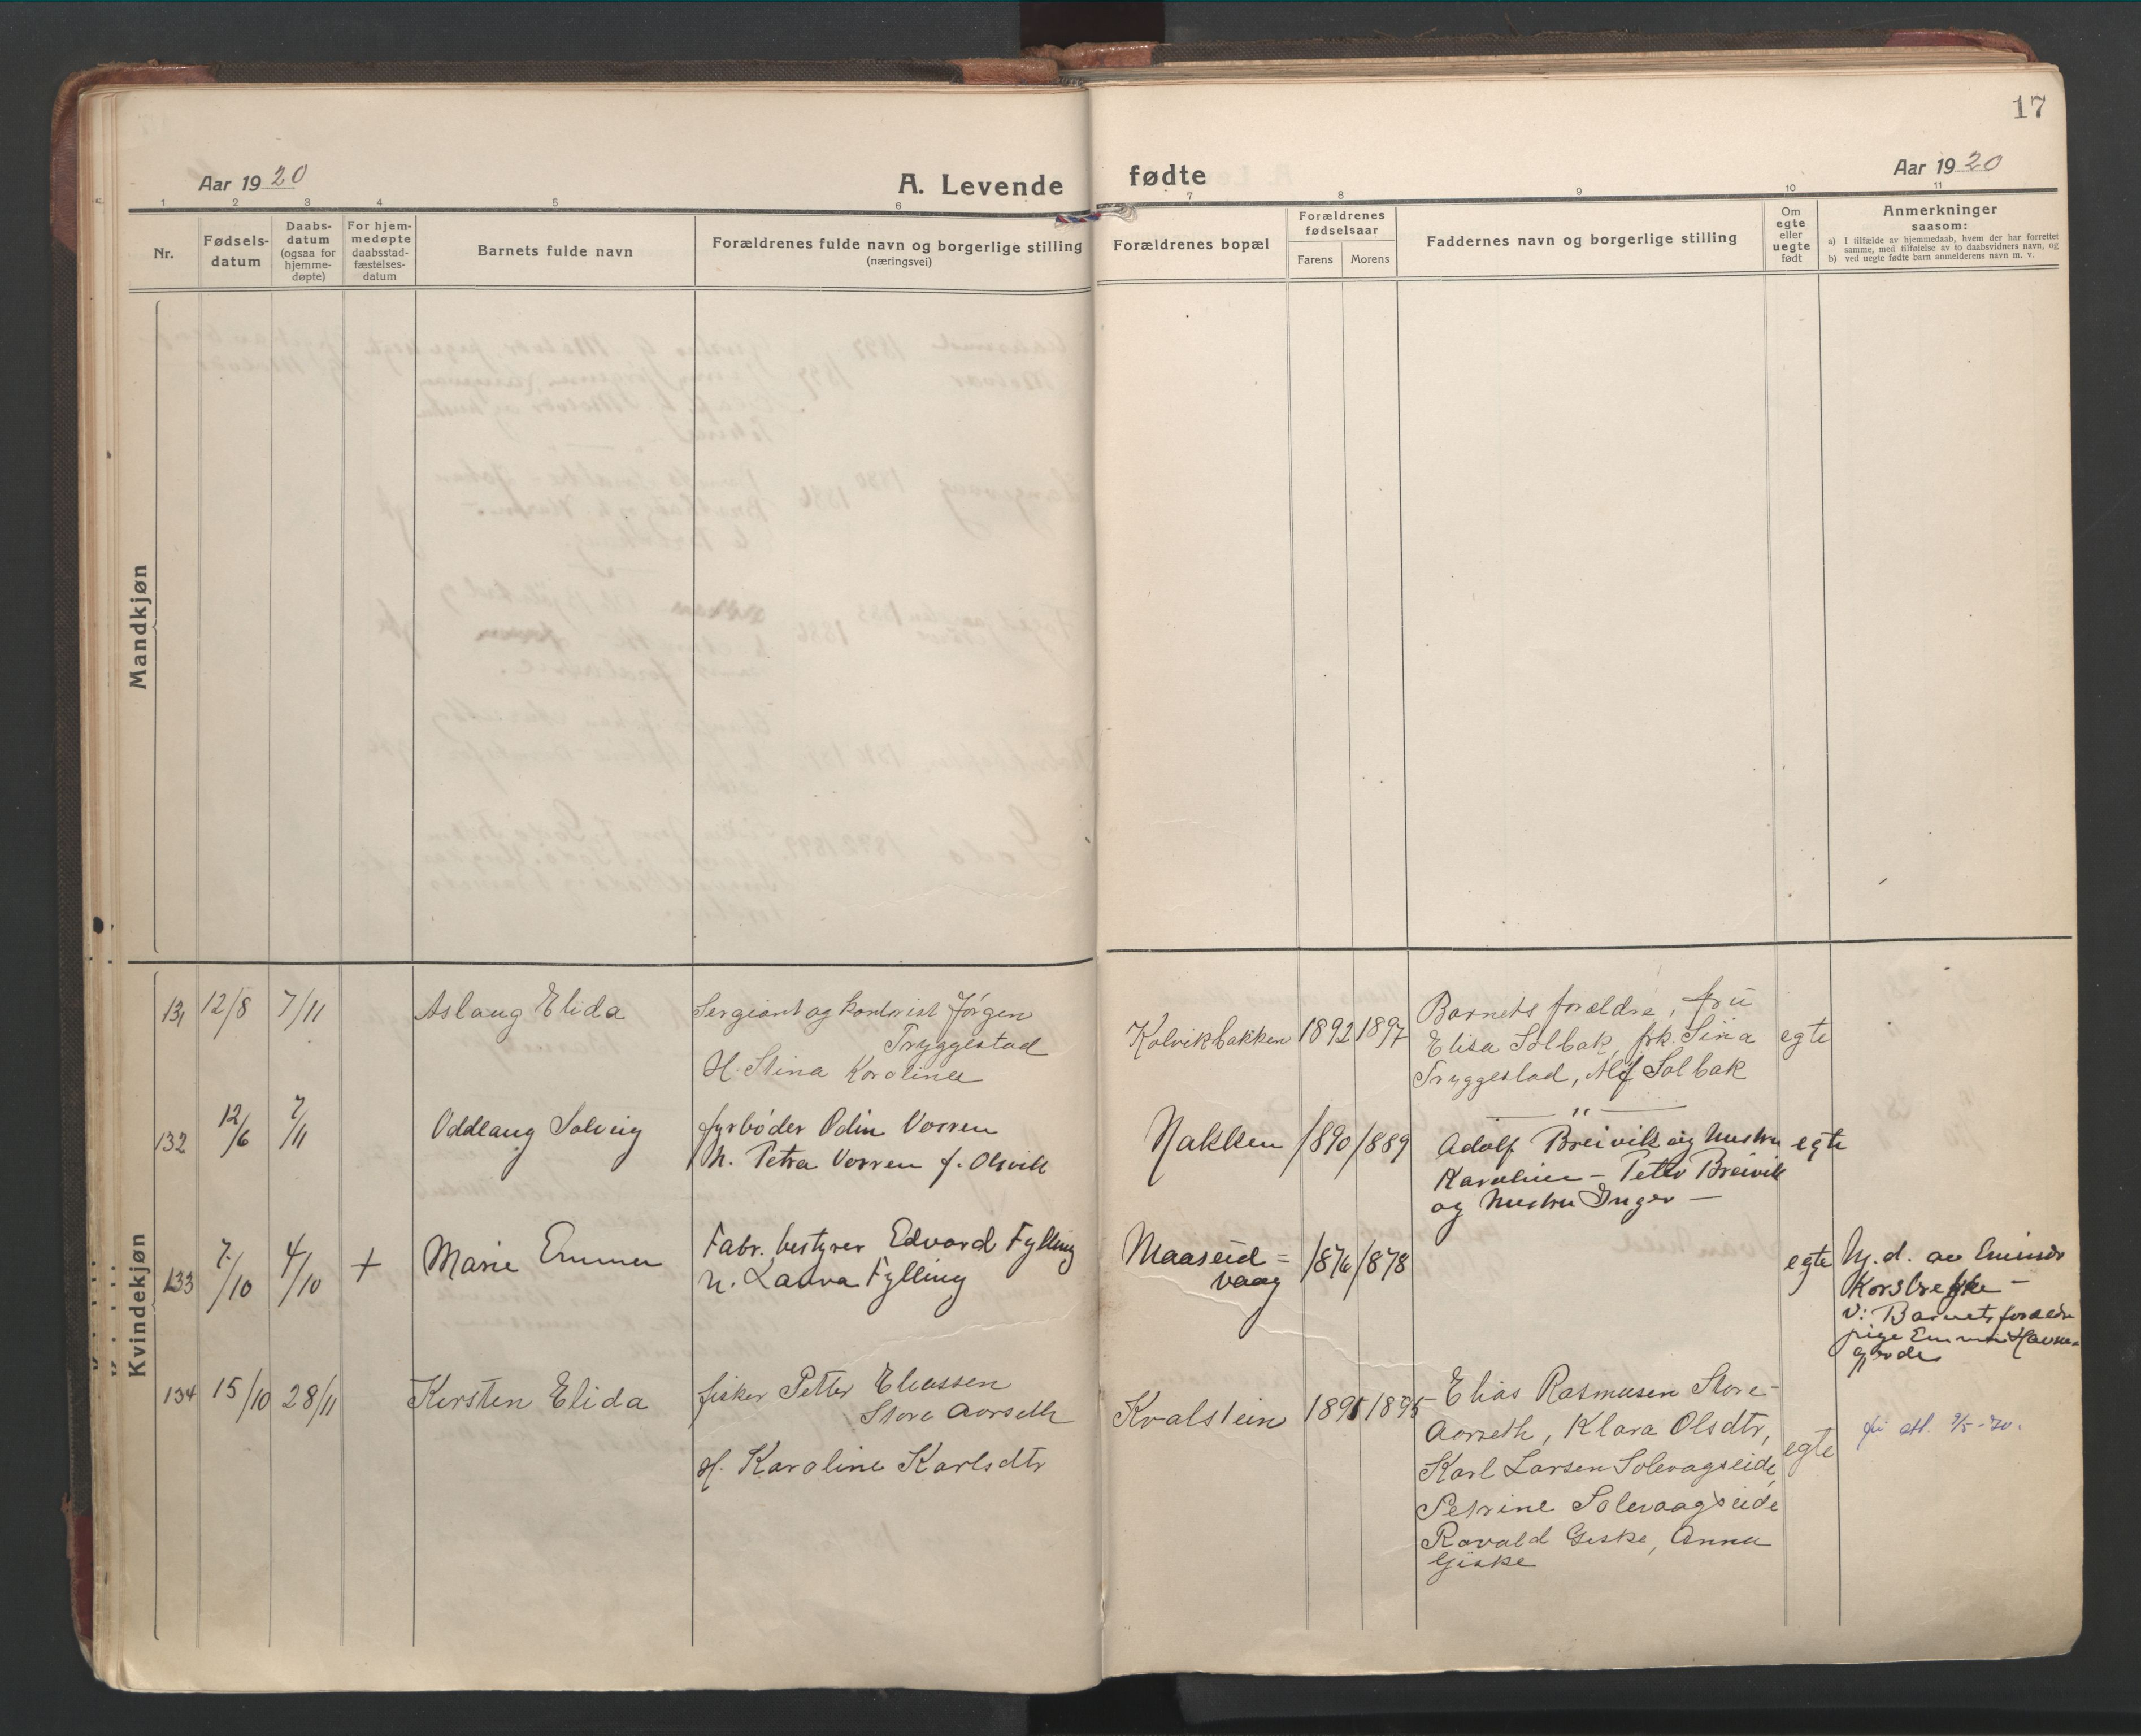 17
Aar 1920
A. Levende
fødte
Aar 1920
1 2 3 4 5 6 7 8 9 10 11
Nr.
Fødsels-
datum
Daabs-
datum
(ogsaa for
hjemme-
døpte)
For hjem-
medøpte
daabsstad-
fæstelses-
datum
Barnets fulde navn
Forældrenes fulde navn og borgerlige stilling
(næringsvei)
Forældrenes bopæl
Forældrenes
fødselsaar
Farens Morens
Faddernes navn og borgerlige stilling
Om
egte
eller
uegte
født
Anmerkninger
saasom:
a) I tilfælde av hjemmedaab, hvem der har forrettet
samme, med tilføielse av to daabsvidners navn, og
b) ved uegte fødte barn anmelderens navn m. v.
Mandkjøn
Kvindekjøn
131 12/8 7/11 Aslaug Elida
Sergiant og kontorist Jørgen
Tryggestad
H. Stina Karoline
Kolvikbakken 1892 1897
Barnets forældre, fru
Elisa Solbak, frk. Sina
Tryggestad, Alf Solbak
egte
132 12/6 7/11 Oddlaug Solveig
fyrbøder Odin Vorren
h. Petra Vorren f. Olsvik
Nakken 1890 1889
— " —
Adolf Breivik og hustru
Karoline – Petter Breivik
og hustru Inger –
egte
133 7/10 4/10 + Marie Emma
Fabr. bestyrer Edvard Fylling
h. Laura Fylling
Maaseid=
vaag
1876 1878
egte
Hj. d. av
Korsbrekke –
V: Barnets forældre
pige Emma
134 15/10 28/11 Kirsten Elida
fisker Petter Eliassen
Store Aarseth
H. Karoline Karlsdtr
Kvalstein 1895 1895
Elias Rasmusen Store-
Aarseth, Klara Olsdtr,
Karl Larsen Solevagseide,
Petrine Solevaagseide
Ravald Giske, Anna
Giske
egte